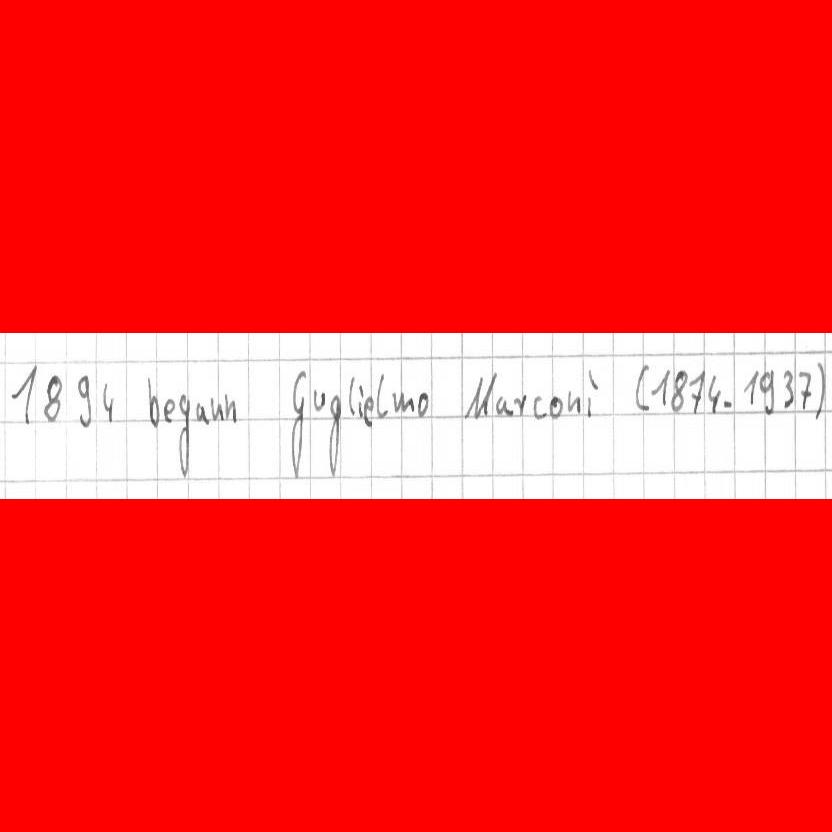 1894 begann Guglielmo Marconi (1874-1937)